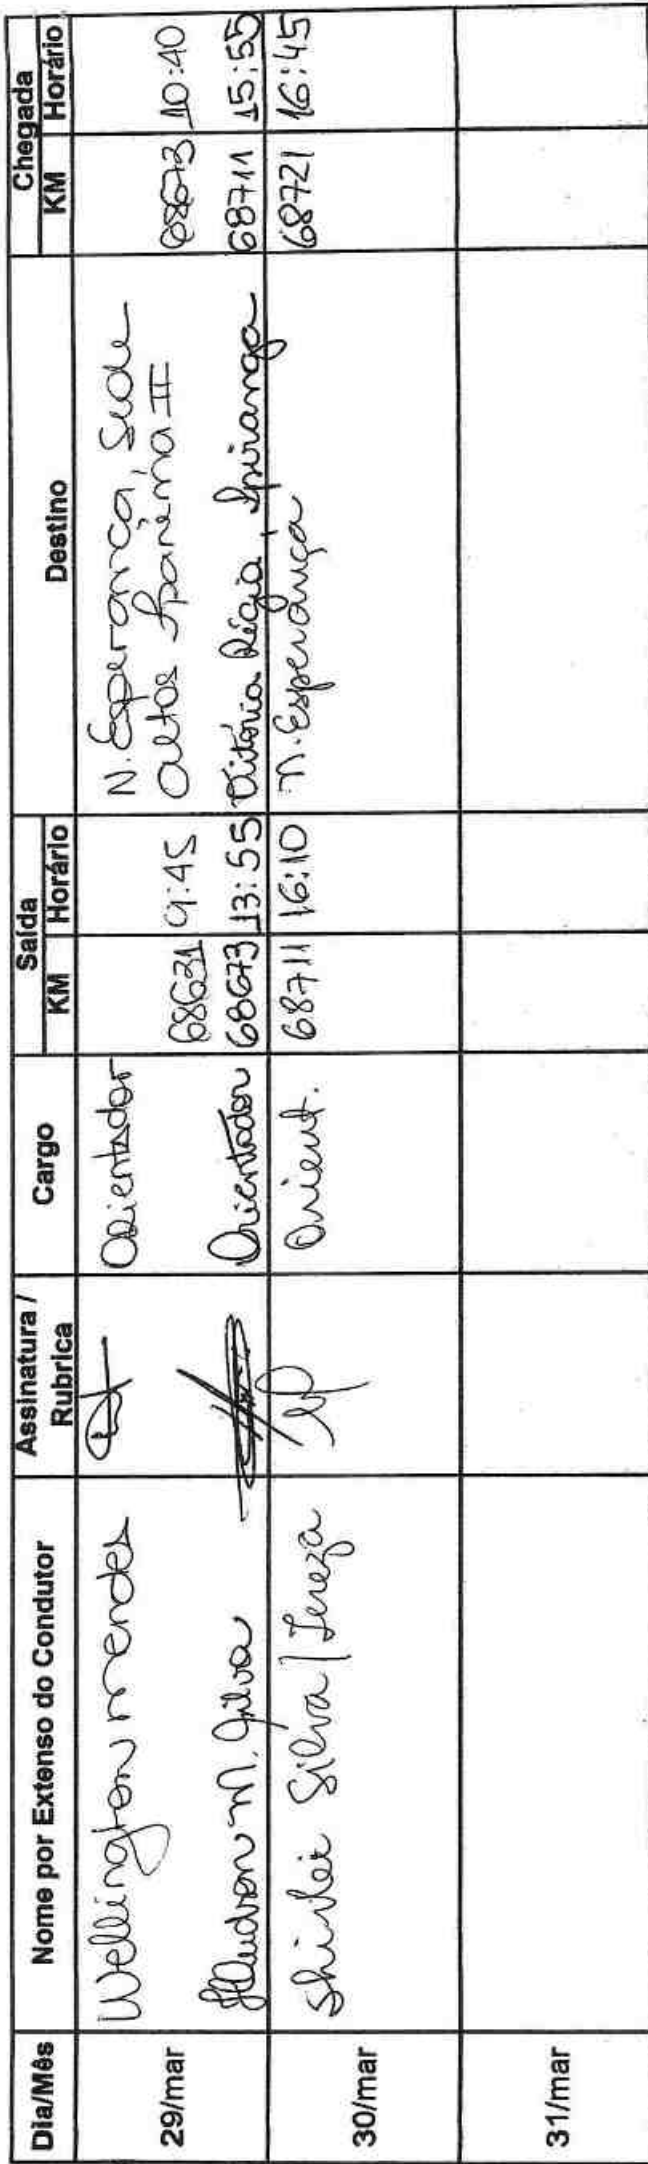 Dia/Mês Nome por Extenso do Condutor Assinatura / Rubrica Cargo Saída Destino Chegada
KM Horário KM Horário
29/mar
Wellington mendes Orientador 68631 9:45 N. Esperança, Sede
altos Ipanema II 68673 10:40
Hudson M. Silva Orientador 68673 13:55 Vitória Régia, Ipiranga 68711 15:55
30/mar
Shirlei Silva / Tereza Orient. 68711 16:10 N. Esperança 68721 16:45
31/mar